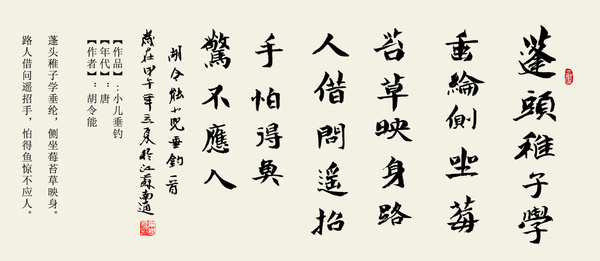 蓬頭稚子學
垂綸側坐莓
苔草映身路
人借問遙招
手怕得魚
驚不應人
胡令能小兒垂釣一首
歲在甲午年於江蘇南通
【作品】:小儿垂钓
【年代】:唐
【作者】:胡令能
蓬头稚子学垂纶，侧坐莓苔草映身。
路人借问遥招手，怕得鱼惊不应人。